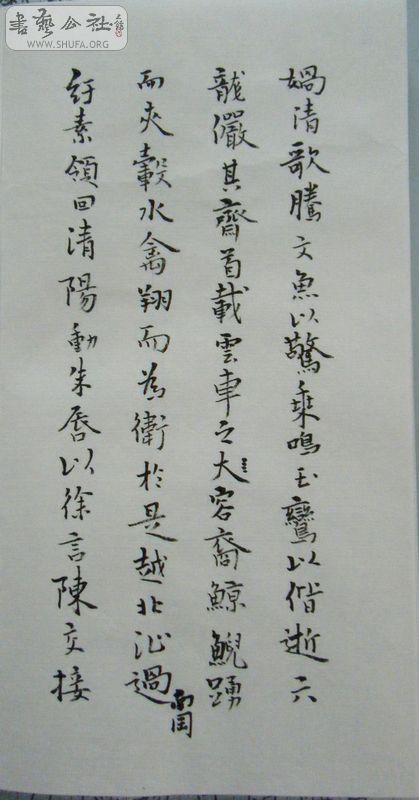 書藝公社
WWW.SHUFA.ORG
媧清歌騰文魚以驚乘鳴玉鸞以偕逝六
龍儼其齊首載雲車之大容裔鯨鯢踴
而夾轂水禽翔而為衛於是越北沚過南岡
紆素領回清陽動朱唇以徐言陳交接